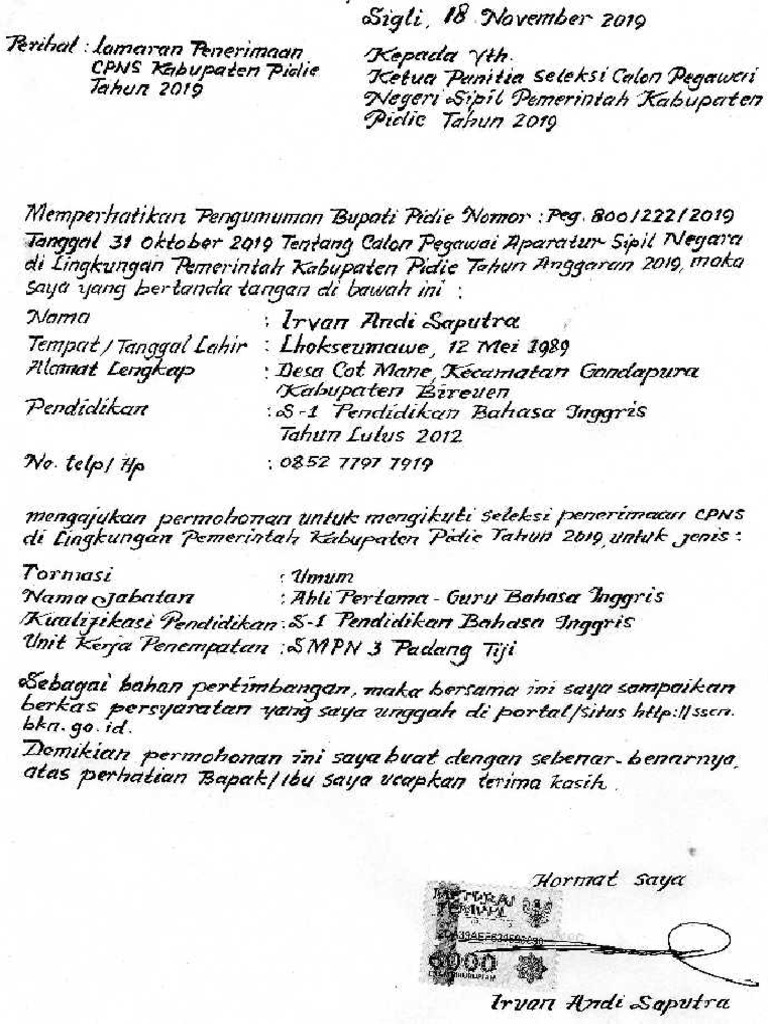 Sigli, 18 November 2019
Perihal : Lamaran Penerimaan
CPNS Kabupaten Pidie
Tahun 2019
Kepada Yth.
Ketua Panitia Seleksi Calon Pegawai
Negeri Sipil Pemerintah Kabupaten
Pidie Tahun 2019
Memperhatikan Pengumuman Bupati Pidie Nomor : Peg. 800/222/2019
Tanggal 31 Oktober 2019 Tentang Calon Pegawai Aparatur Sipil Negara
di Lingkungan Pemerintah Kabupaten Pidie Tahun Anggaran 2019, maka
saya yang bertanda tangan di bawah ini :
Nama : Irvan Andi Saputra
Tempat / Tanggal Lahir : Lhokseumawe, 12 Mei 1989
Alamat Lengkap : Desa Cot Mane, Kecamatan Gandapura
Kabupaten Bireuen
Pendidikan : S-1 Pendidikan Bahasa Inggris
Tahun Lulus 2012
No. telp / Hp : 0852 7797 7919
mengajukan permohonan untuk mengikuti seleksi penerimaan CPNS
di Lingkungan Pemerintah Kabupaten Pidie Tahun 2019, untuk jenis :
Formasi : Umum
Nama Jabatan : Ahli Pertama - Guru Bahasa Inggris
Kualifikasi Pendidikan : S-1 Pendidikan Bahasa Inggris
Unit Kerja Penempatan : SMPN 3 Padang Tiji
Sebagai bahan pertimbangan, maka bersama ini saya sampaikan
berkas persyaratan yang saya unggah di portal/situs http://sscn.
bkn.go.id.
Demikian permohonan ini saya buat dengan sebenar-benarnya,
atas perhatian Bapak/Ibu saya ucapkan terima kasih.
Hormat saya
METERAI
TEMPEL
6000
Irvan Andi Saputra